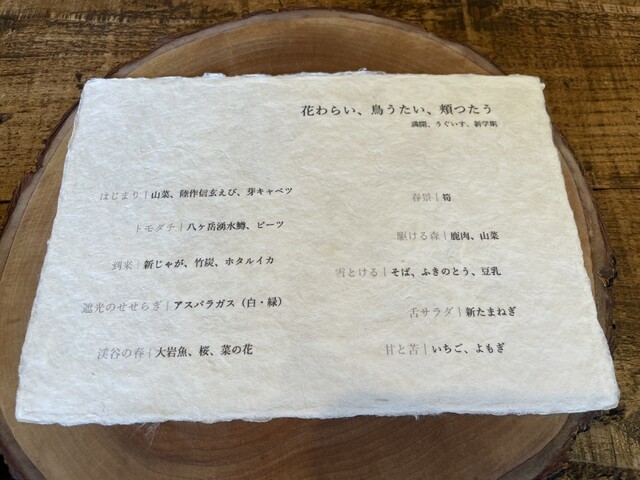 花わらい、鳥うたい、頬つたう
満開、うぐいす、新学期
はじまり|山菜、陸作信玄えび、芽キャベツ
トモダチ|八ヶ岳湧水鱒、ビーツ
到来|新じゃが、竹炭、ホタルイカ
遮光のせせらぎ|アスパラガス（白・緑）
渓谷の春|大岩魚、桜、菜の花
春景|筍
駆ける森|鹿肉、山菜
雪とける|そば、ふきのとう、豆乳
舌サラダ|新たまねぎ
甘と苦|いちご、よもぎ